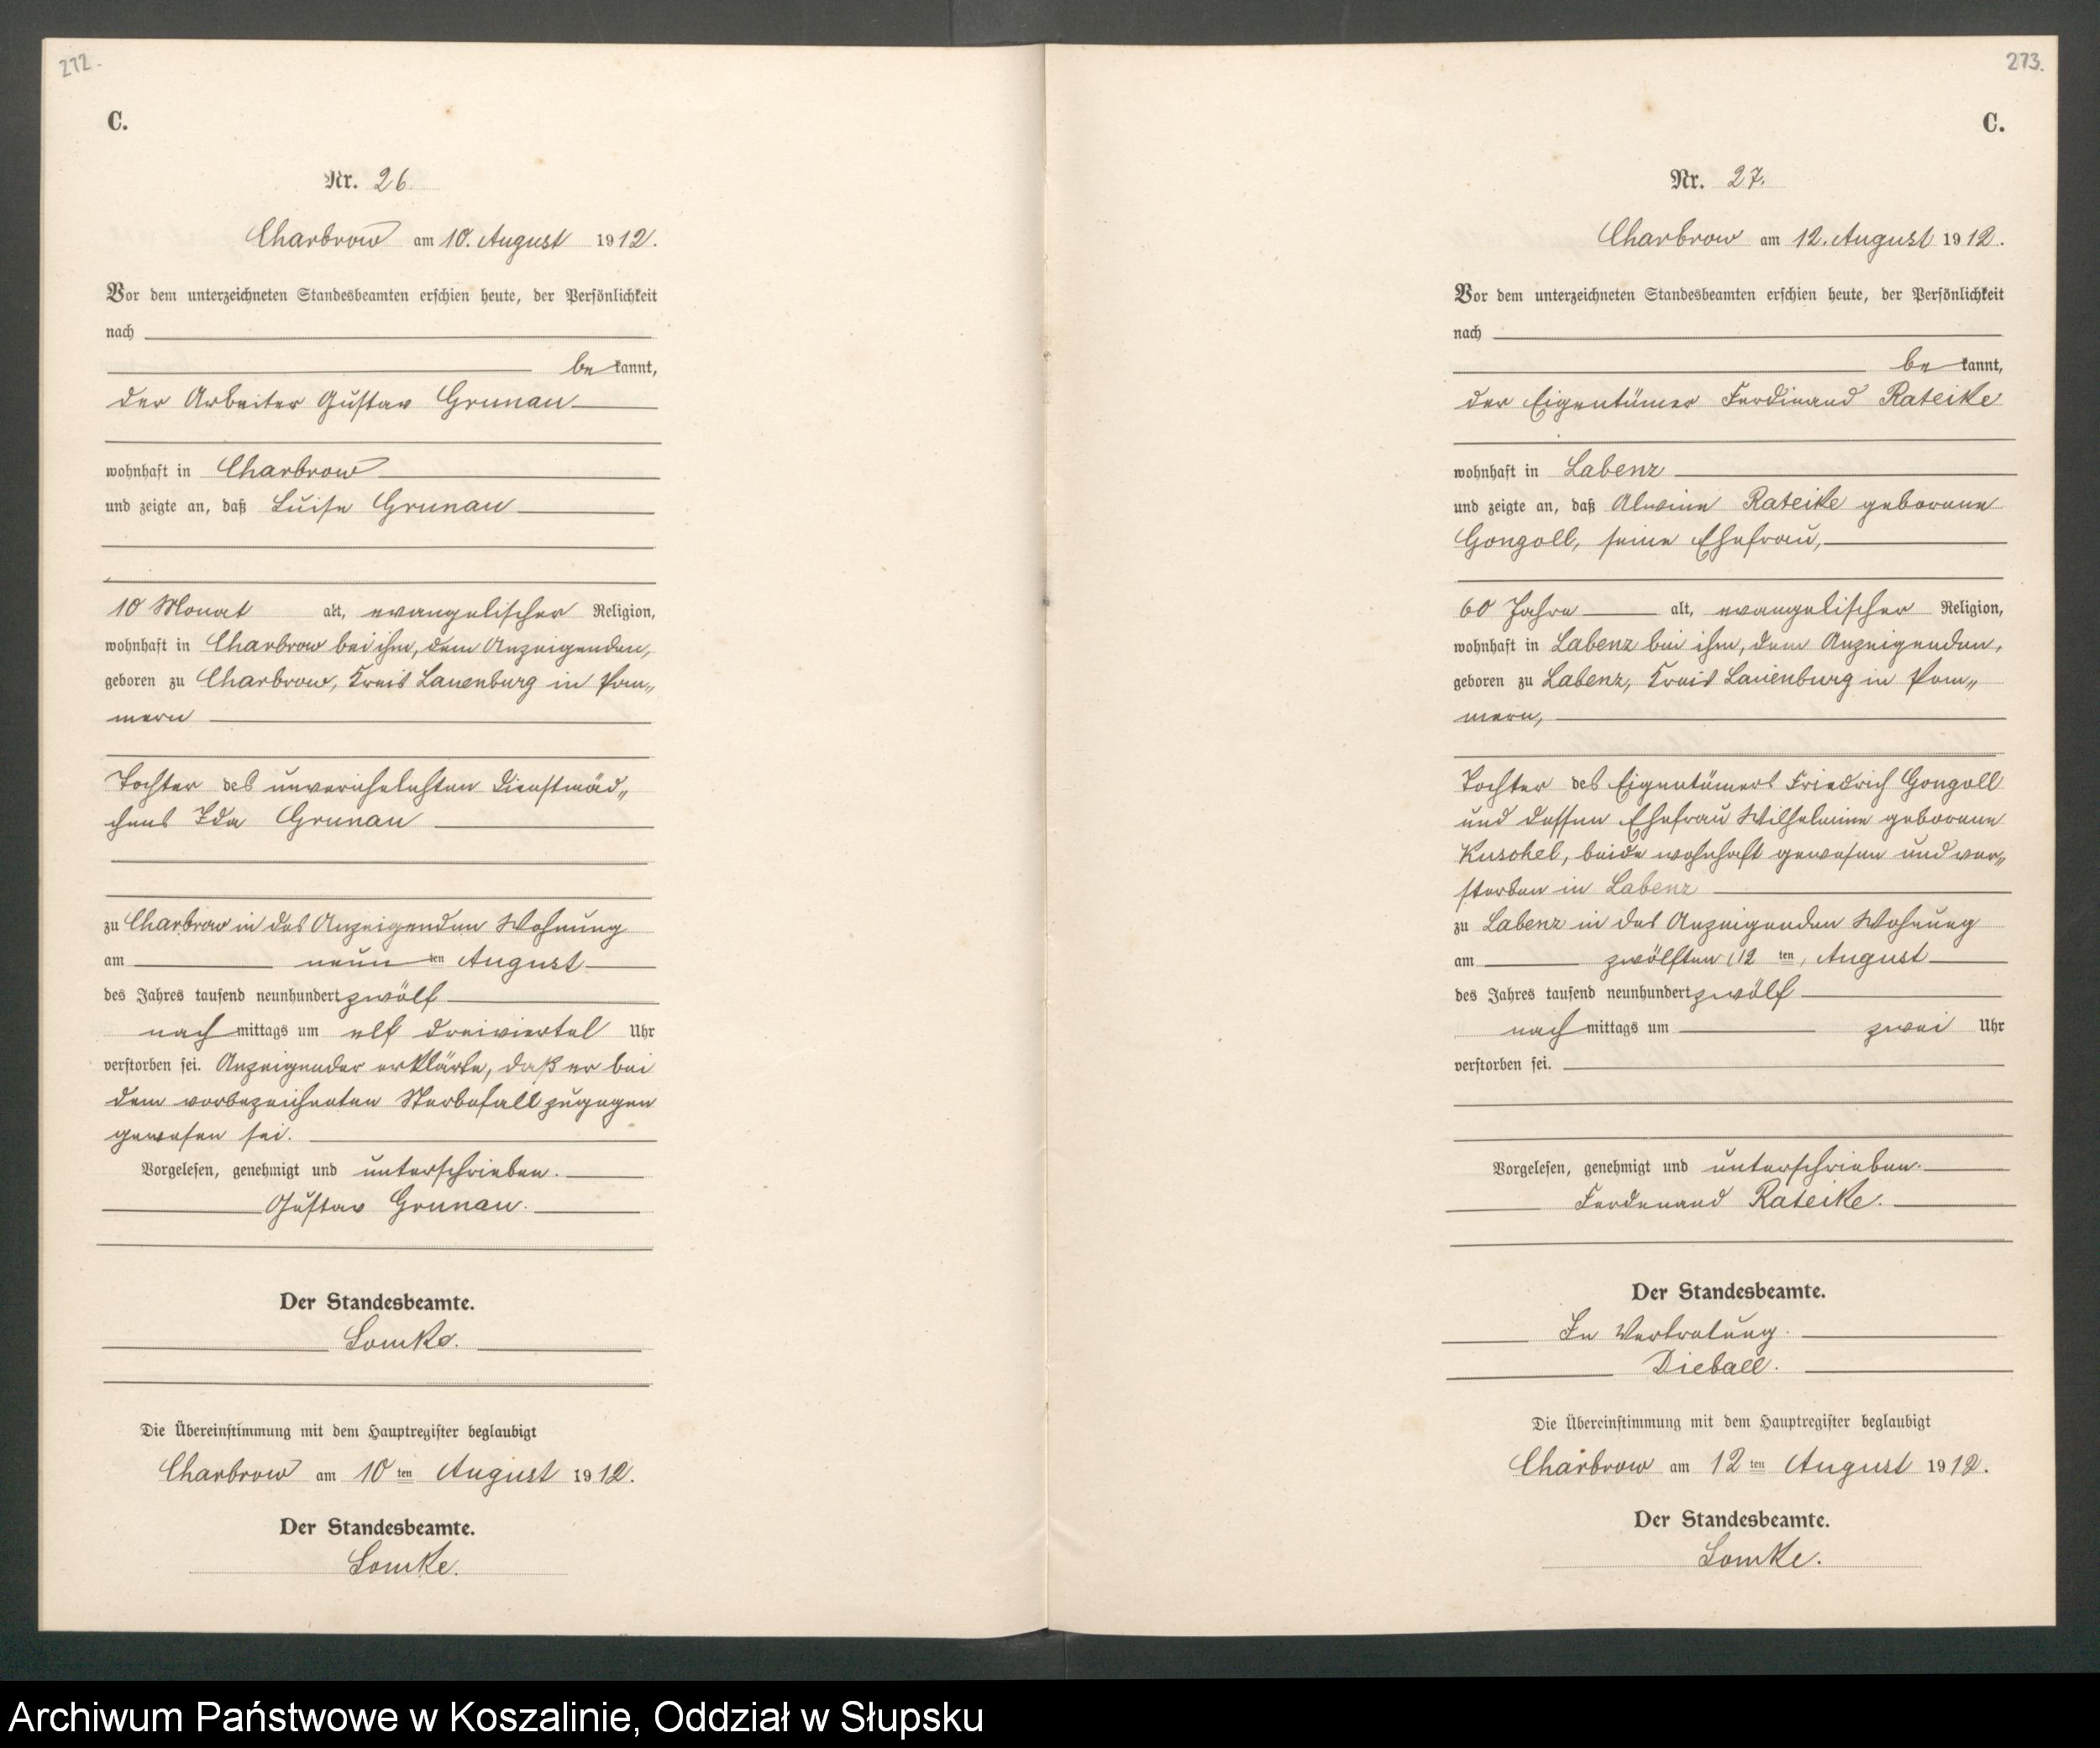 272.
C.
Nr. 26.
Charbrow am 10. August 1912.
Vor dem unterzeichneten Standesbeamten erschien heute, der Persönlichkeit
nach
be kannt,
der Arbeiter Gustav Grunau
wohnhaft in Charbrow
und zeigte an, daß Luise Grunau
10 Monat alt, evangelischer Religion,
wohnhaft in Charbrow bei ihm, dem Anzeigenden,
geboren zu Charbrow, Kreis Lauenburg in Pom„
mern
Tochter des unverehelichten Dienstmäd„
chens Ida Grunau
zu Charbrow in des Anzeigenden Wohnung
am neun ten August
des Jahres tausend neunhundert zwölf
nach mittags um elf dreiviertel Uhr
verstorben sei. Anzeigender erklärte, daß er bei
dem vorbezeichneten Sterbefall zugegen
gewesen sei.
Vorgelesen, genehmigt und unterschrieben.
Gustav Grunau.
Der Standesbeamte.
Lomke.
Die Übereinstimmung mit dem Hauptregister beglaubigt
Charbrow am 10 ten August 1912.
Der Standesbeamte.
Lomke.
273.
C.
Nr. 27.
Charbrow am 12. August 1912.
Vor dem unterzeichneten Standesbeamten erschien heute, der Persönlichkeit
nach
be kannt,
der Eigentümer Ferdinand Rateike
wohnhaft in Labenz
und zeigte an, daß Alwine Rateike geborene
Gongoll, seine Ehefrau,
60 Jahre alt, evangelischer Religion,
wohnhaft in Labenz bei ihm, dem Anzeigenden,
geboren zu Labenz, Kreis Lauenburg in Pom„
mern,
Tochter des Eigentümers Friedrich Gongoll
und dessen Ehefrau Wilhelmine geborene
Kuschel, beide wohnhaft gewesen und ver„
storben in Labenz
zu Labenz in des Anzeigenden Wohnung
am zwölften (12 ten) August
des Jahres tausend neunhundert zwölf
nach mittags um zwei Uhr
verstorben sei.
Vorgelesen, genehmigt und unterschrieben.
Ferdenand Rateike.
Der Standesbeamte.
In Vertretung.
Dieball.
Die Übereinstimmung mit dem Hauptregister beglaubigt
Charbrow am 12 ten August 1912.
Der Standesbeamte.
Lomke.
Archiwum Państwowe w Koszalinie, Oddział w Słupsku